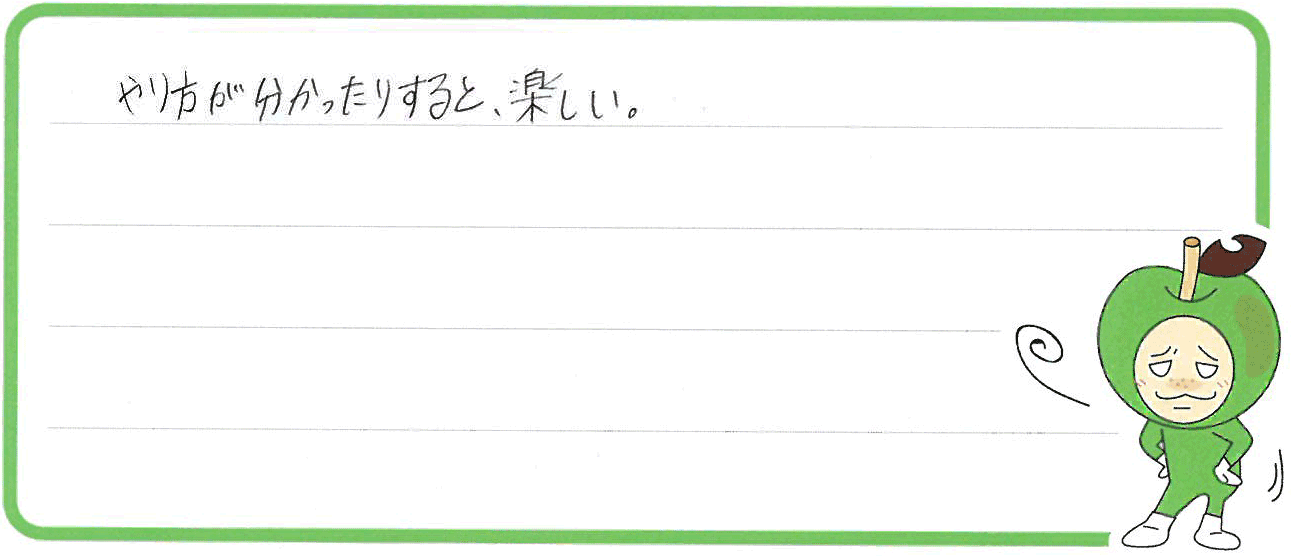 やり方が分かったりすると、楽しい。